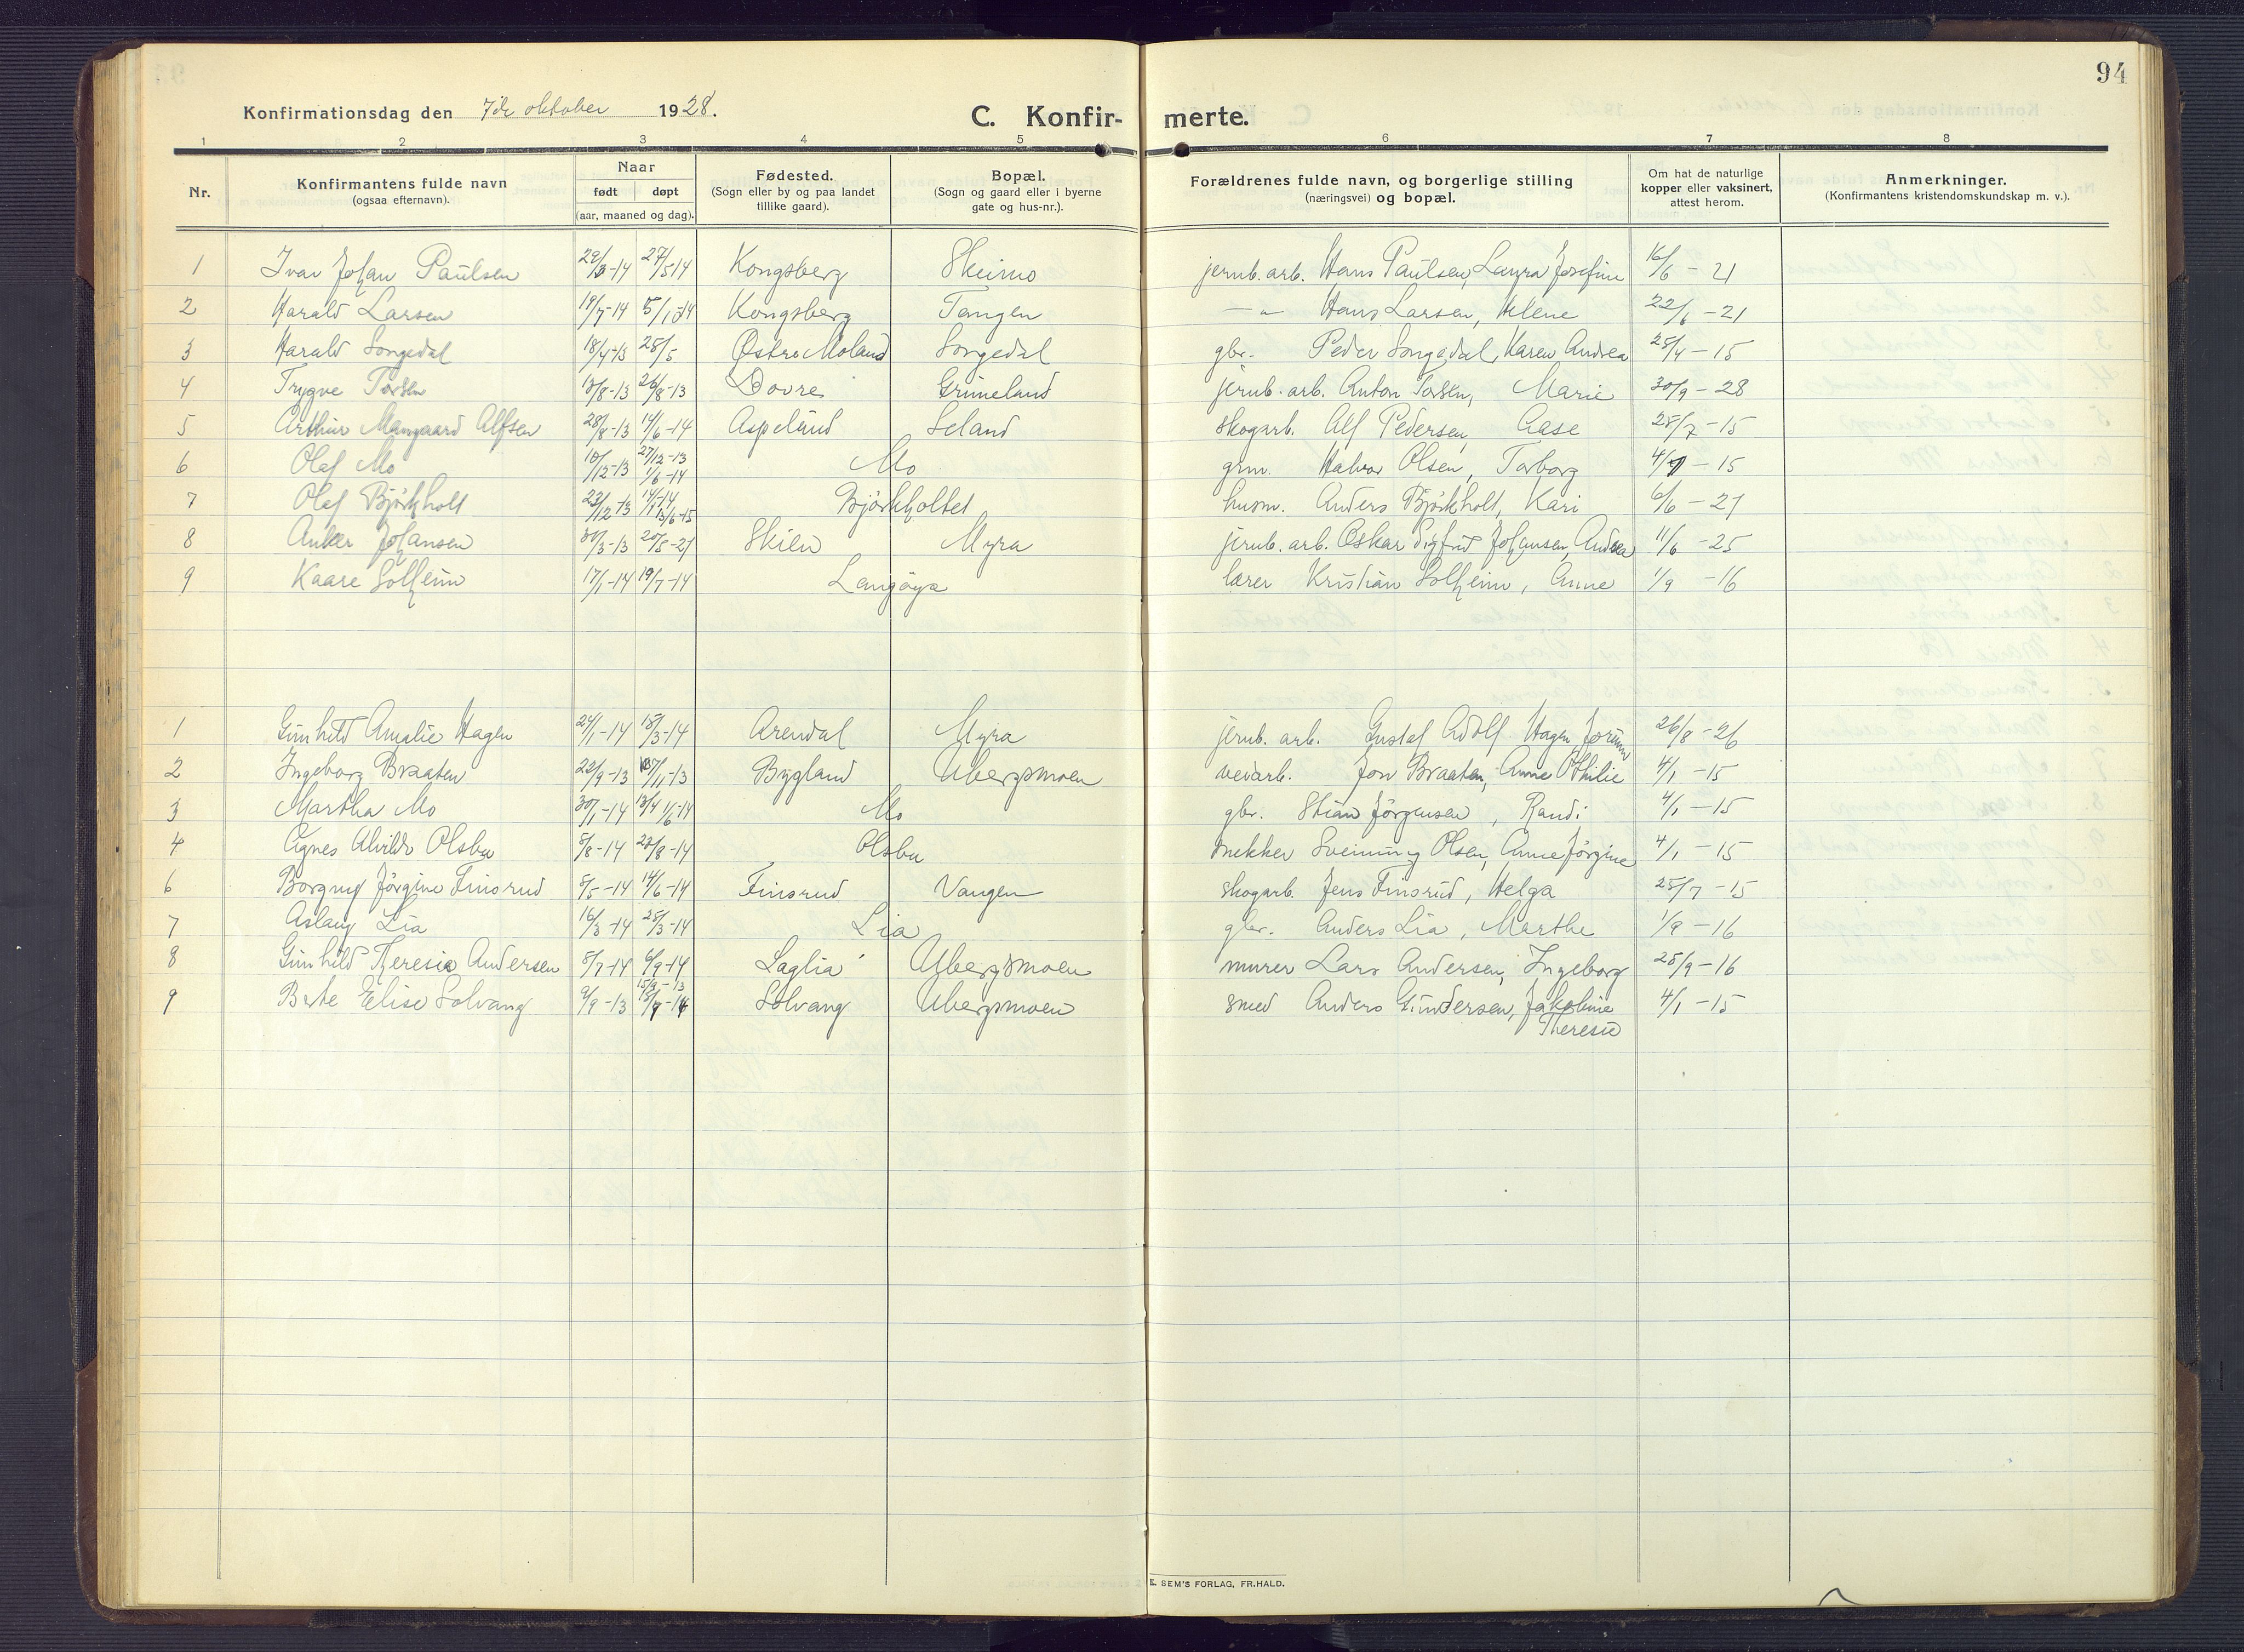 94
Konfirmationsdag den 7de oktober 1928.
C. Konfir- merte.
1 2 3 4 5 6 7 8
Nr.
Konfirmantens fulde navn
(ogsaa efternavn).
Naar
født døpt
(aar, maaned og dag).
Fødested.
(Sogn eller by og paa landet
tillike gaard).
Bopæl.
(Sogn og gaard eller i byerne
gate og hus-nr.).
Forældrenes fulde navn, og borgerlige stilling
(næringsvei) og bopæl.
Om hat de naturlige
kopper eller vaksinert,
attest herom.
Anmerkninger.
(Konfirmantens kristendomskundskap m. v.).
1 Ivar Johan Paulsen 27/5 14 Kongsberg Skeimo jernb. arb. Hans Paulsen, Laura Josefine 16/6 - 21
2 Harald Larsen 19/7-14 Kongsberg Tangen — " — Hans Larsen, Helene 22/6 - 21
3 Harald Songedal 18/4-13 25/5 Østre Moland Songedal gbr. Peder Songedal, Karen Andrea 25/4 - 15
4 Trygve Torsen 26/8-13 Dovre Grimeland jernb. arb. Anton Torsen, Marie 30/9 - 28
5 Arthur Alfsen 28/8-13 14/6-14 Aspelund Seland skogarb. Alf Pedersen, Aase 25/7 - 15
6 Olaf Mo 10/12-13 27/12-13 1/6-14 Mo grm. Halvor Olsen, Torborg - 15
7 Olaf Bjørkholt 23/12-13 Bjørkholtet husm. Anders Bjørkholt, Kari 6/6 - 21
8 Anker Johansen 30/3-13 20/5-21 Skien Myra jernb. arb. Oskar Sigfrid Johansen, Andrea 11/6 - 25
9 Kaare Solheim 17/1-14 19/7-14 Langøya lærer Kristian Solheim, Anne 1/9 - 16
1 Gunhild Amalie Hagen 24/1-14 15/3-14 Arendal Myra jernb. arb. Gustaf Adolf Hagen, Jorunn 26/8 - 26
2 Ingeborg Braaten 22/9-13 Bygland Ubergsmoen veiarb. Jon Braaten, Anne Othilie 4/1 - 15
3 Martha Mo 30/1-14 13/4 1/6-14 Mo gbr. Stian Jörgensen, Randi 4/1 - 15
4 Agnes Alvilde Olsbu 5/8-14 23/8-14 Olsbu snekker Sveinung Olsen, Anne Jörgine 4/1 - 15
6 Borgny Jörgine Finsrud 5/5-14 14/6-14 Finsrud Vangen skogarb. Jens Finsrud, Helga 25/7 - 15
7 Aslaug Lia 16/3-14 25/3-14 Lia gbr. Anders Lia, Marthe 1/9 - 16
8 Gunhild Theresie Andersen 5/7-14 6/9-14 Laglia Ubergsmoen murer Lars Andersen, Ingeborg 25/9 - 16
9 Berte Elise Solvang 9/9-13 Solvang Ubergsmoen smed Anders Gundersen, Jakobine
Theresie 4/1 - 15
E. SEM'S FORLAG, FR.HALD.